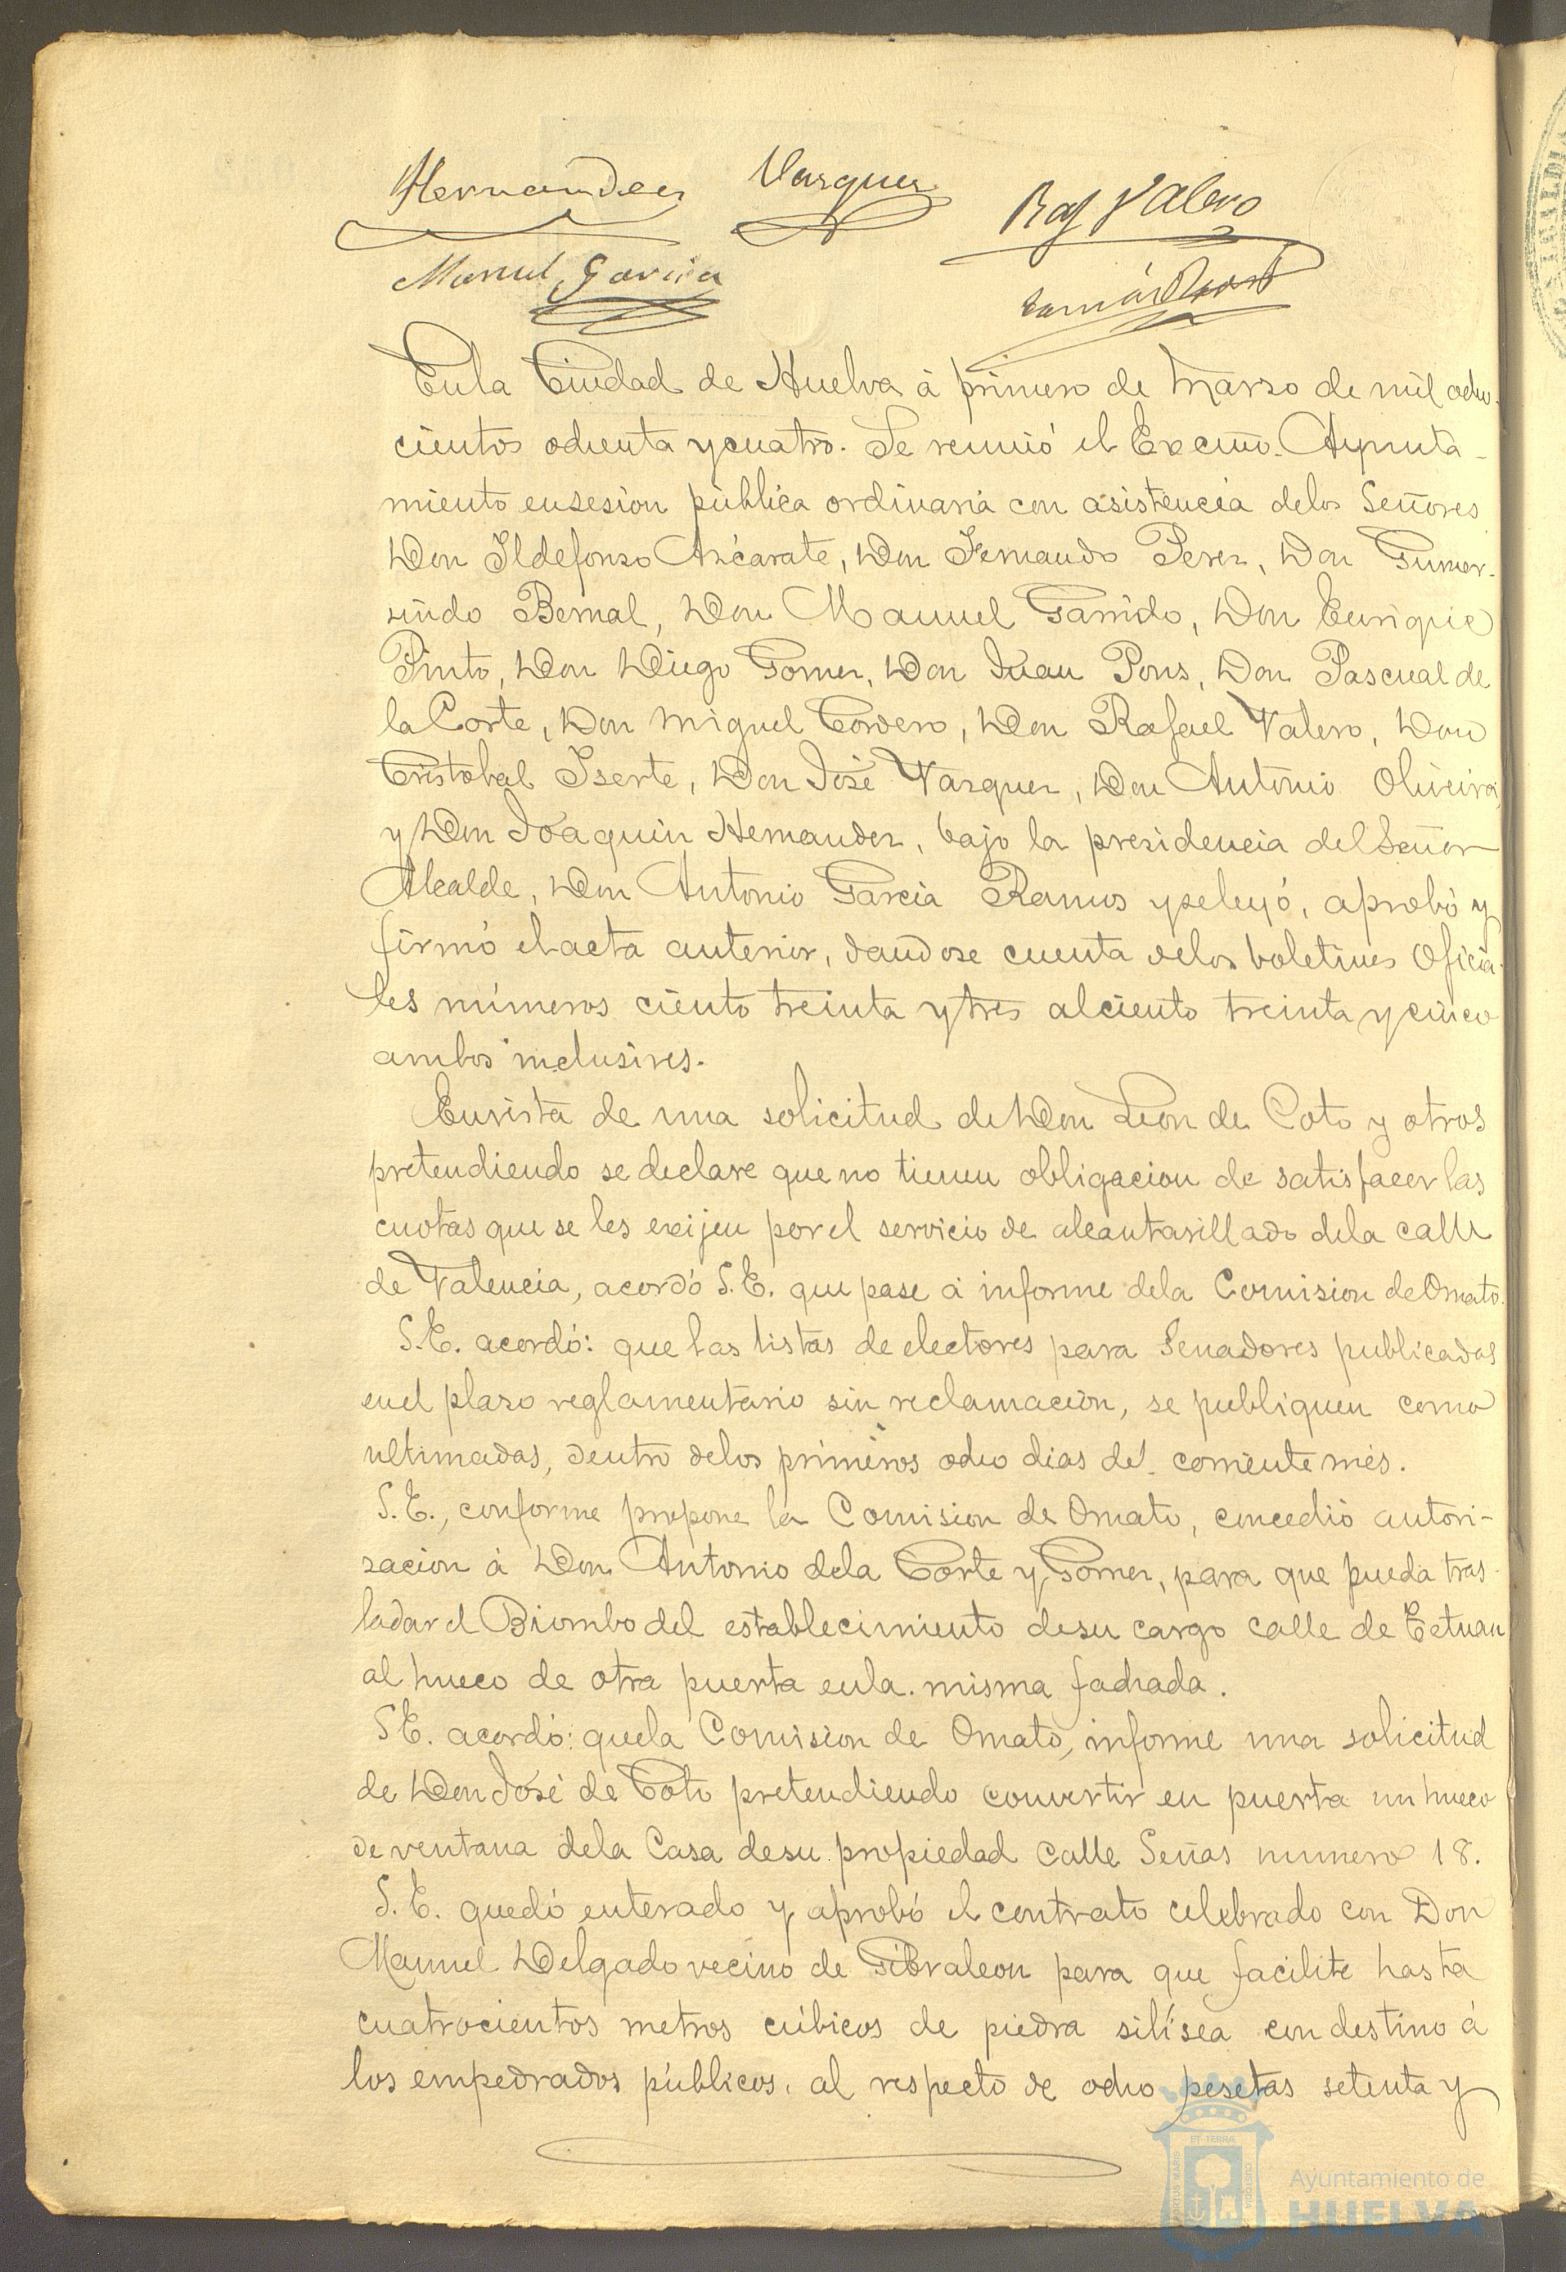 Hernandez Vazquez Raf Valero
Manuel Garcia Tomás
En la Ciudad de Huelva á primero de Marzo de mil ocho-
cientos ochenta y cuatro. Se reunió el Excmo. Ayunta-
miento en sesion pública ordinaria con asistencia de los Señores
Don Ildefonso Azcárate, Don Fernando Perez, Don Gumer-
sindo Bernal, Don Manuel Garrido, Don Enrique
Pinto, Don Diego Gomez, Don Juan Pons, Don Pascual de
la Corte, Don Miguel Cordero, Don Rafael Valero, Don
Cristobal Iserte, Don José Vazquez, Don Antonio Oliveira,
y Don Joaquin Hernandez, bajo la presidencia del Señor
Alcalde, Don Antonio Garcia Ramos y se leyó, aprobó y
firmó el acta anterior, dandose cuenta de los boletines Oficia-
les números ciento treinta y tres al ciento treinta y cinco
ambos inclusives.
En vista de una solicitud de Don Leon de Coto y otros
pretendiendo se declare que no tienen obligacion de satisfacer las
cuotas que se les exijen por el servicio de alcantarillado de la calle
de Valencia, acordó S.E. que pase á informe de la Comision de Ornato.
S.E. acordó: que las listas de electores para Senadores publicadas
en el plazo reglamentario sin reclamación, se publiquen como
ultimadas, dentro de los primeros ocho dias del corriente més.
S.E., conforme propone la Comision de Ornato, concedió autori-
zacion á Don Antonio de la Corte y Gomez, para que pueda tras-
ladar el Biombo del establecimiento de su cargo calle de Tetuan
al hueco de otra puerta en la misma fachada.
S.E. acordó: que la Comision de Ornato, informe una solicitud
de Don José de Coto pretendiendo convertir en puerta un hueco
de ventana de la Casa de su propiedad calle Señas numero 18.
S.E. quedó enterado y aprobó el contrato celebrado con Don
Manuel Delgado vecino de Gibraleon para que facilite hasta
cuatrocientos metros cúbicos de piedra silísea con destino á
los empedrados públicos, al respecto de ocho pesetas setenta y
Ayuntamiento de
HUELVA